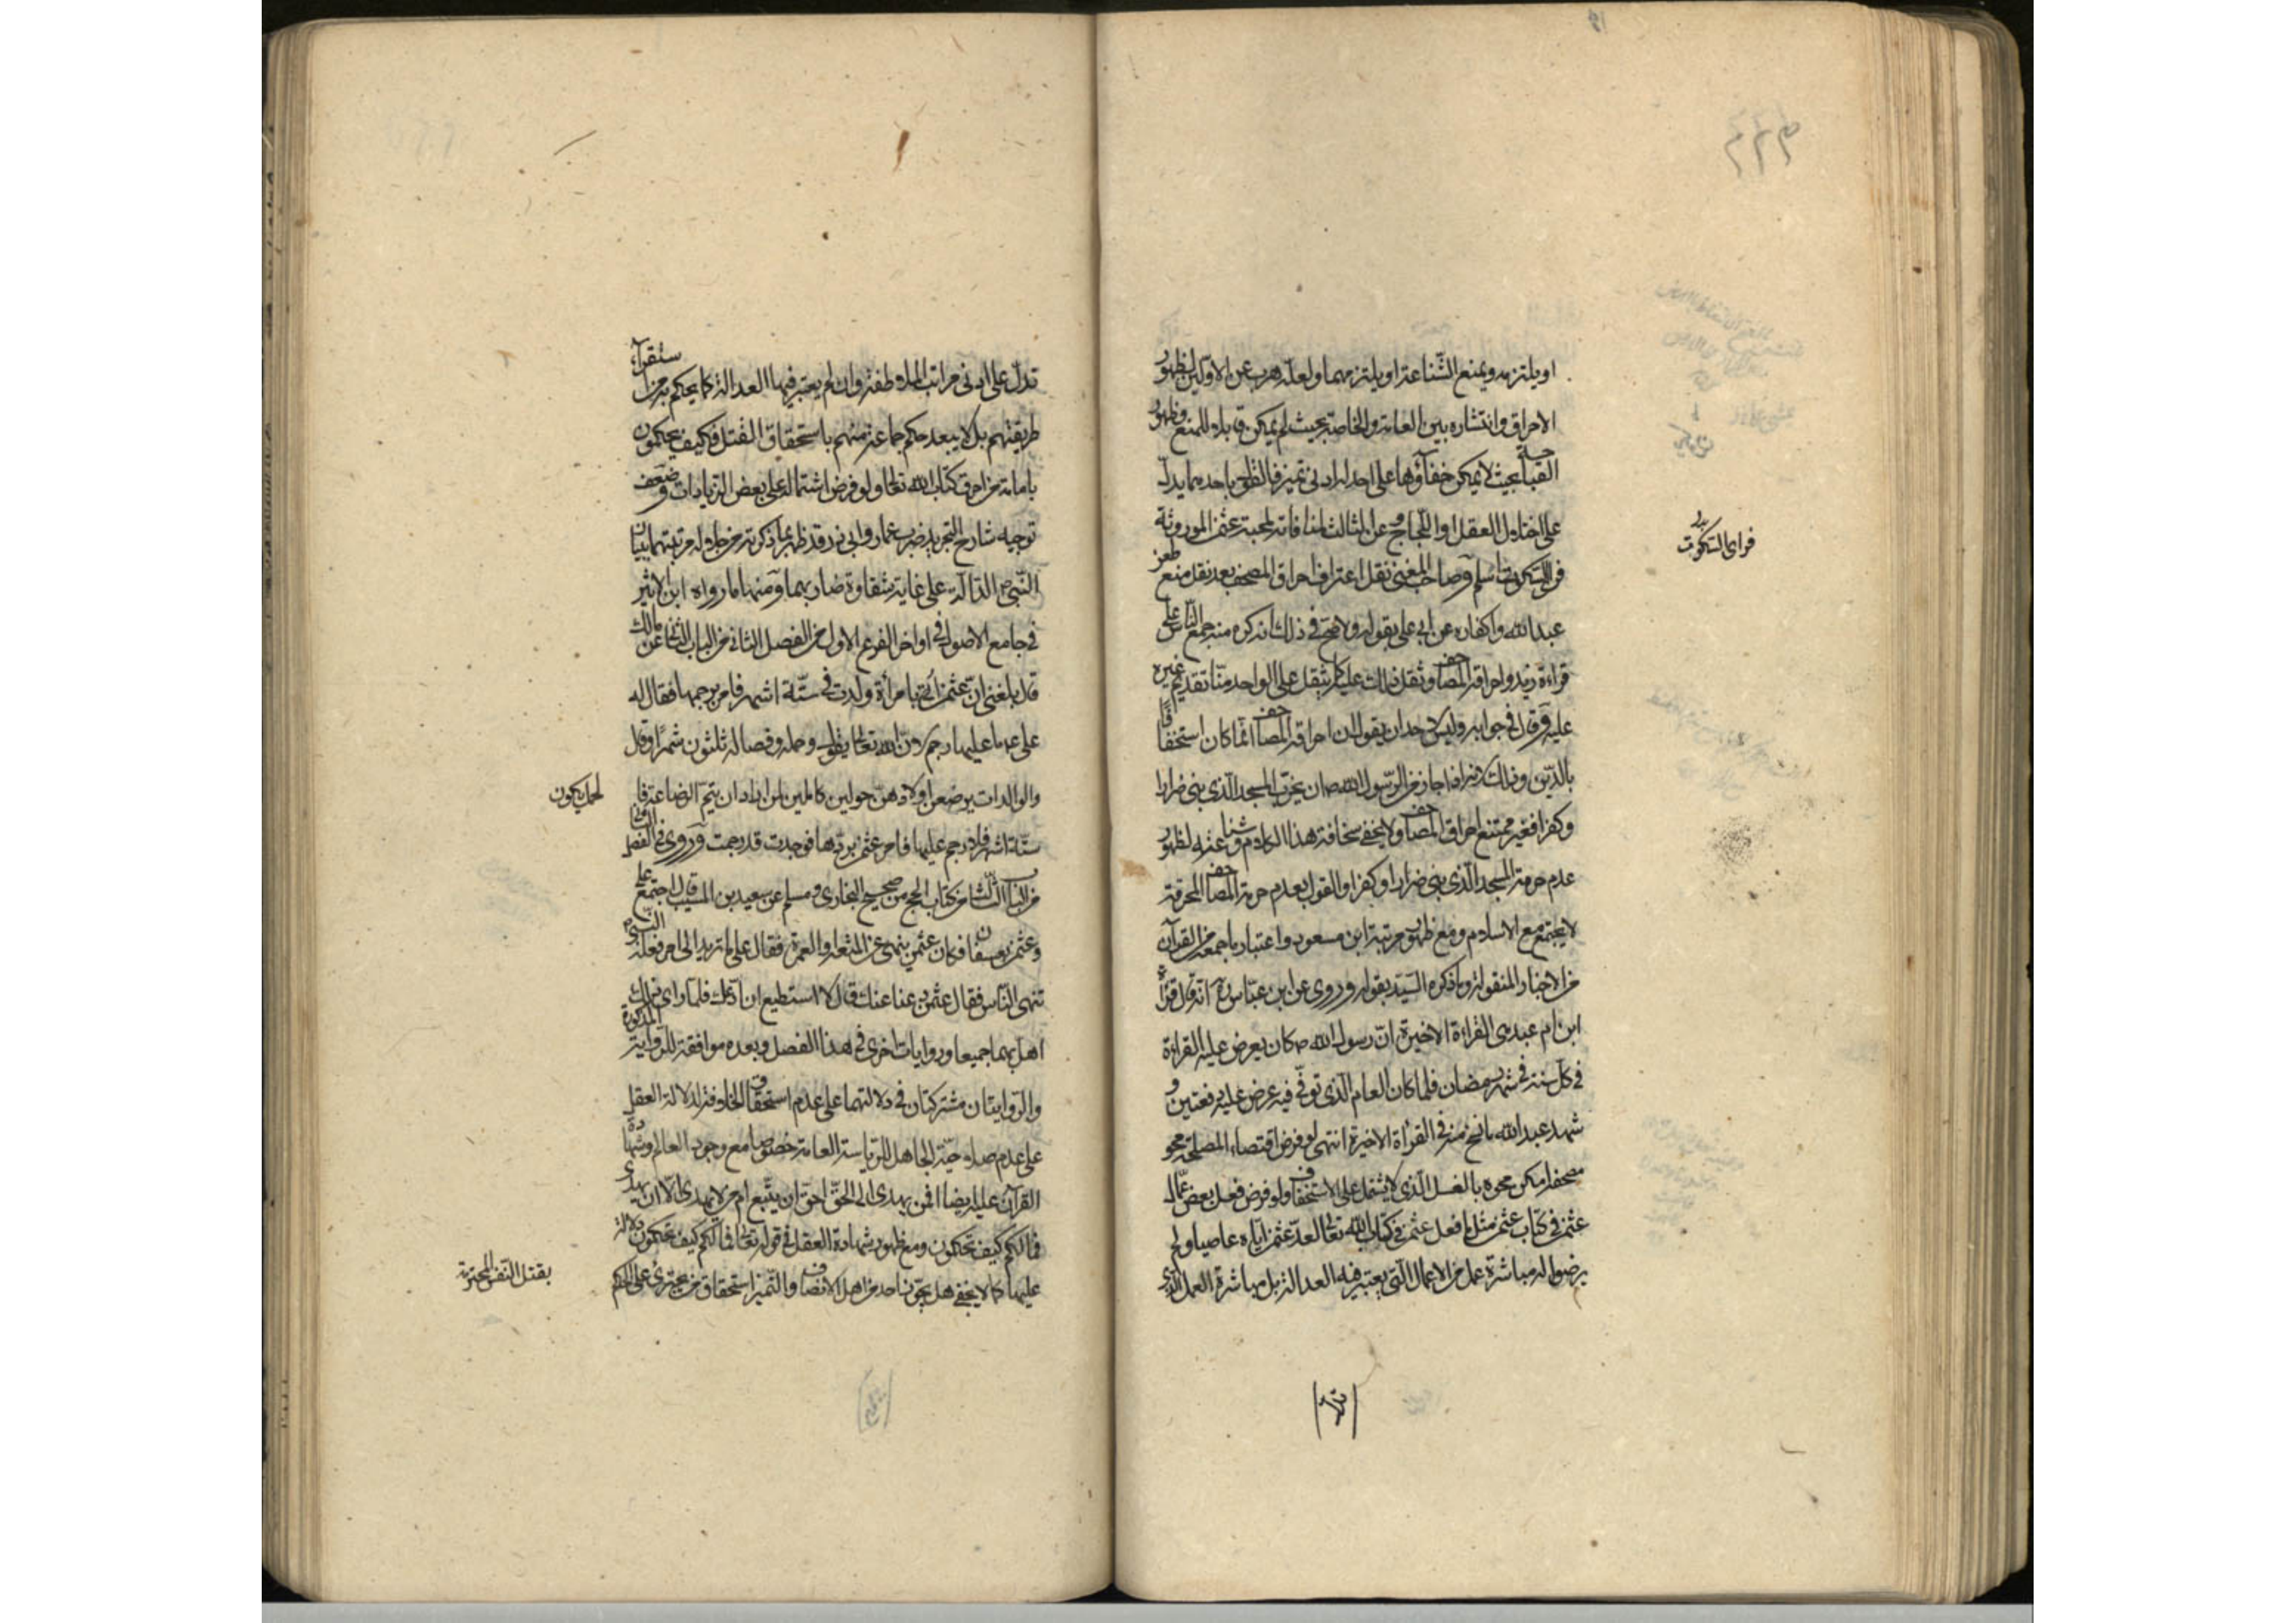 او يلتزمه ويمنع الشناعة او يلتزمهما ولعله هرب عن الاولين لظهور
الاحراق وانتشاره بين العامة والخاصة بحيث لم يمكن قابلا للمنع وظهور
القباحة بحيث لا يمكن خفاؤها على احد له ادنى تميز فالنطق باحدهما يدل
على اختلال العقل او اللجاج وعن الثالث لمنافاته لمحبة عثمن الموروثة
فراى السكوت اسلم وصاحب المغنى نقل اعتراف احراق المصحف بعد نقل منع طعن
عبدالله واكفاره عن ابى على بقوله ولا صح فى ذلك انه كره منه جمع الناس على
قراءة زيد واحراقه المصاحف وثقل ذلك عليه كما يثقل على الواحد منا تقديم غيره
عليه وقال فى جوابه وليس لاحد ان يقول ان احراقه المصاحف انما كان استخفافا
بالدين وذلك لانه اذا جاز من الرسول الله ص ان يخرب المسجد الذى بنى ضرارا
وكفرا فغير ممتنع احراق المصاحف ولا يخفى سخافة هذا الكلام وشناعته لظهور
عدم حرمة المسجد الذى بنى ضرارا وكفرا والقول بعدم حرمة المصاحف المحرقة
لا يجتمع مع الاسلام ومع ظهور مرتبة ابن مسعود واعتبار ما جمعه من القرآن
من الاخبار المنقولة وما ذكره السيد بقوله وروى عن ابن عباس ره انه قال قراءة
ابن ام عبد هى القراءة الاخيرة ان رسول الله ص كان يعرض عليه القراءة
فى كل سنة فى شهر رمضان فلما كان العام الذى توفى فيه عرض عليه دفعتين و
شهد عبدالله ما نسخ منه فهى القراءة الاخيرة انتهى لو فرض اقتضاء المصلحة محو
مصحفه امكن محوه بالغسل الذى لا يشتمل على الاستخفاف ولو فرض فعل بعض عمال
عثمن فى كتاب عثمن مثل ما فعل عثمن فى كتاب الله تعالى لعد عثمن اياه عاصيا ولم
يرضوا له مباشرة عمل من الاعمال التى يعتبر فيه العدالة بل مباشرة العمل الذى
فراى السكوت
تدل على ادنى مراتب الملاطفة وان لم يعتبر فيها العدالة كما يحكم به من استقرآء
طريقتهم بل لا يبعد حكم جماعة منهم باستحقاق القتل فكيف يحكمون
بامامة من احرق كتاب الله تعالى ولو فرض اشتماله على بعض الزيادات وضعف
توجيه شارح التجريد ضرب عمار وابى ذر قد ظهر بما ذكرته من جلالة مرتبتهما ببيان
النبى ص الدالة على غاية شقاوة ضاربهما ومنها ما رواه ابن الاثير
فى جامع الاصول فى اواخر الفرع الاول من الفصل الثانى من الباب الثانى عن مالك
قال بلغنى ان عثمن اتى بامرأة ولدت فى ستة اشهر فامر برجمها فقال له
على ع ما عليها رجم لان الله تعالى يقول وحمله وفصاله ثلثون شهرا وقال
والوالدات يرضعن اولادهن حولين كاملين لمن اراد ان يتم الرضاعة فا
لحمل يكون
ستة اشهر فلا رجم عليها فامر عثمن بردها فوجدت قد رجمت وروى فى الفصل الثانى
من الباب الثالث من كتاب الحج من صحيح البخارى ومسلم عن سعيد بن المسيب قال اجتمع على
وعثمن بعسفان فكان عثمن ينهى عن المتعة او العمرة فقال على ما تريد الى امر فعله النبى ص
تنهى الناس فقال عثمن دعنا عنك قال لا استطيع ان ادعك فلما راى ذلك
اهل بهما جميعا وروايات اخرى فى هذا الفصل وبعده موافقة للرواية المذكورة
والروايتان مشتركتان فى دلالتهما على عدم استحقاق الخلافة لدلالة العقل
على عدم صلاحية الجاهل للرياسة العامة خصوصا مع وجود العالم وشهادة
القرآن عليه ايضا افمن يهدى الى الحق احق ان يتبع ام من لا يهدى الا ان يهدى
فما لكم كيف تحكمون ومع ظهور شهادة العقل فى قوله تعالى فما لكم كيف تحكمون دلالة
عليها كما لا يخفى هل يجوز احد من اهل الانصاف والتميز استحقاق من يجترئ على الحكم
بقتل النفس المحترمة